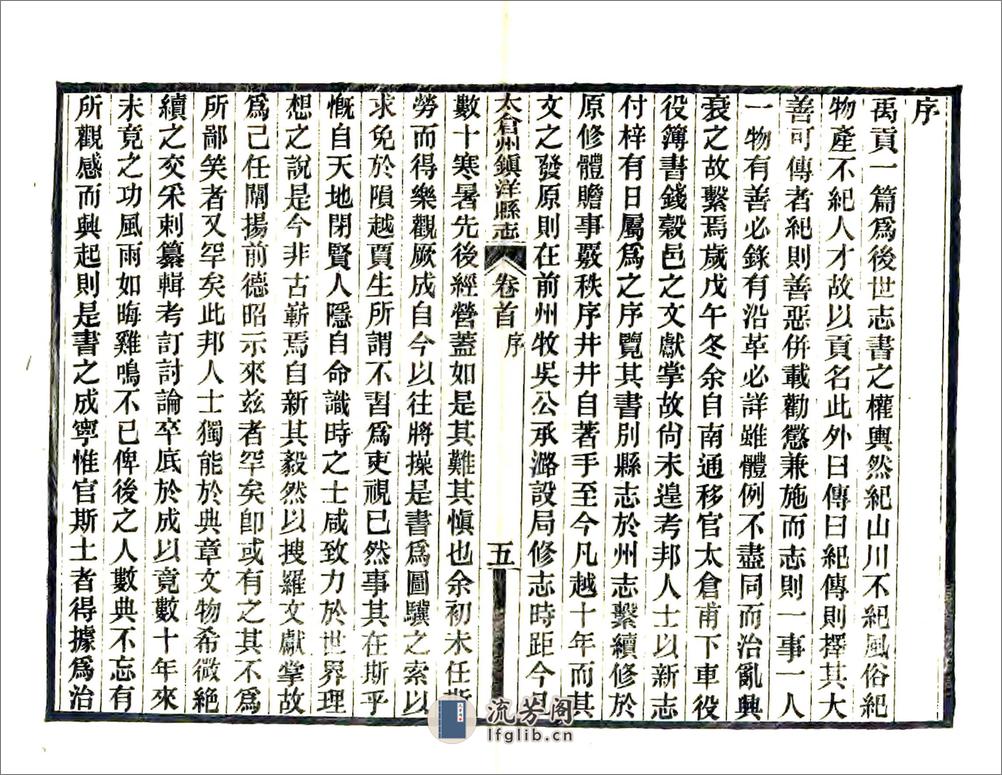 序
禹貢一篇爲後世志書之權輿然紀山川不紀風俗紀
物產不紀人才故以貢名此外曰傳曰紀傳則擇其大
善可傳者紀則善惡併載勸懲兼施而志則一事一人
一物有善必錄有沿革必詳雖體例不盡同而治亂興
衰之故繫焉歲戊午冬余自南通移官太倉甫下車役
役簿書錢穀邑之文獻掌故尙未遑考邦人士以新志
付梓有日屬爲之序覽其書別縣志於州志繫續修於
原修體贍事覈秩序井井自著手至今凡越十年而其
文之發原則在前州牧吳公承潞設局修志時距今
太倉州鎭洋縣志
卷首
序
五
數十寒暑先後經營蓋如是其難其愼也余初未任
勞而得樂觀厥成自今以往將操是書爲圖驥之索以
求免於隕越賈生所謂不習爲吏視已然事其在斯乎
慨自天地閉賢人隱自命識時之士咸致力於世界理
想之說是今非古嶄焉自新其毅然以搜羅文獻掌故
爲己任闡揚前德昭示來玆者罕矣卽或有之其不爲
所鄙笑者又罕矣此邦人士獨能於典章文物希微絕
續之交采刺纂輯考訂討論卒底於成以竟數十年來
未竟之功風雨如晦雞鳴不已俾後之人數典不忘有
所觀感而興起則是書之成寧惟官斯土者得據爲治
流芳阁
lfglib.cn